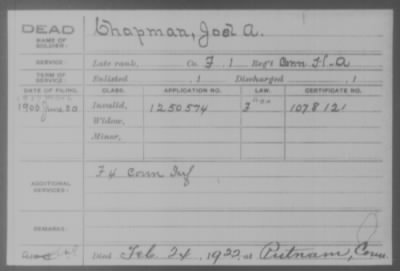 DEAD
NAME OF SOLDIER:
Chapman, Joel A.
SERVICE:
Late rank, Co. F, 1 Reg't Conn H-A
TERM OF SERVICE:
Enlisted , 1 Discharged , 1
DATE OF FILING. CLASS. APPLICATION NO. LAW. CERTIFICATE NO.
1900 June 20 Invalid, 1250574 1078121
Widow,
Minor,
ADDITIONAL SERVICES:
F 4 Conn Inf
REMARKS:
Died Feb 24, 1922, at Putnam, Conn.